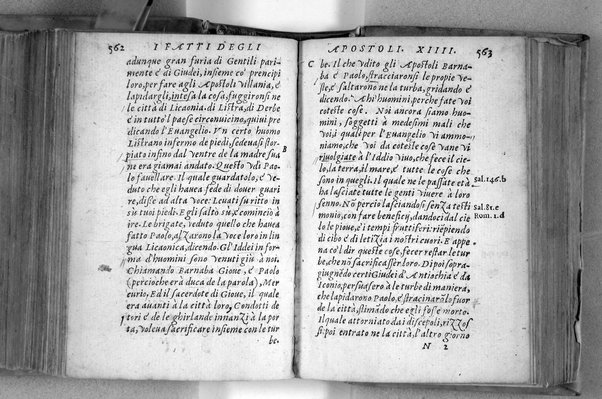 562 I FATTI DEGLI
adunque gran furia di Gentili pari-
mente e di Giudei, insieme co' prencipi
loro, per fare agli Apostoli villania, e
lapidargli, intesa la cosa, fuggironsi ne
le città di Licaonia. di Listra, di Derbe
è in tutto'l paese circonuicino, quiui pre
dicando l'Euangelio. Vn certo huomo
Listrano infermo de piedi, sedeuasi stor
piato infino dal ventre de la madre sua B
ne era giamai andato. Questo vdì Pao
lo fauellare. Il quale guardatolo, e ve-
duto che egli haueua fede di douer guari
re, disse ad alta voce: Leuati su ritto in
su tuoi piedi. Egli saltò su, e cominciò à
ire. Le brigate, veduto quello che hauea
fatto Paolo, alzarono la voce loro in lin
gua Licaonica, dicendo. Gl'Iddei in for-
ma d'huomini sono venuti giu à noi.
Chiamando Barnaba Gioue, e Paolo
(percioche era duca de la parola), Mer
curio, Ed il sacerdote di Gioue, il quale
era auanti à la città loro, Condotti de
tori è de le ghirlande innanzi à la por
ta, voleua sacrificare insieme con le tur
be.
APOSTOLI. XIIII. 563
C be. Il che vdito gli Apostoli Barna-
ba è Paolo, stracciaronsi le propie ve-
ste, e saltarono ne la turba, gridando è
dicendo. Ahi huomini, perche fate voi
coteste cose. Noi ancora siamo huo-
mini, soggetti à medesimi mali che
voi, i quali per l'Euangelio vi ammo-
niamo, che voi da coteste cose vane vi
riuolgiate à l'Iddio viuo, che fece il cie-
lo, la terra, il mare, e tutte le cose che
sono in quegli. Il quale ne le passate età Sal. 146. b
ha lasciate tutte le genti viuere à loro
senno. Nō perciò lasciandosi senza testi Sal. 81. e
monio, con fare beneficij, dandoci dal cie Rom. 1. d
lo le pioue, e i tempi fruttiferi: riēpiendo
di cibo è di letizia i nostri cuori. E appe
na co'l dir queste cose, fecer restar le tur
be, che nō sacrificasser loro. Di poi sopra
giugnēdo certi Giudei d'Antiochia è da
Iconio, persuasero à le turbe di maniera,
che lapidarono Paolo, è stracinarōlo fuor
de la città, stimādo che egli fosse morto.
Il quale attorniato da i discepoli, rizzos
si. poi entrato ne la città, l'altro giorno
N 2